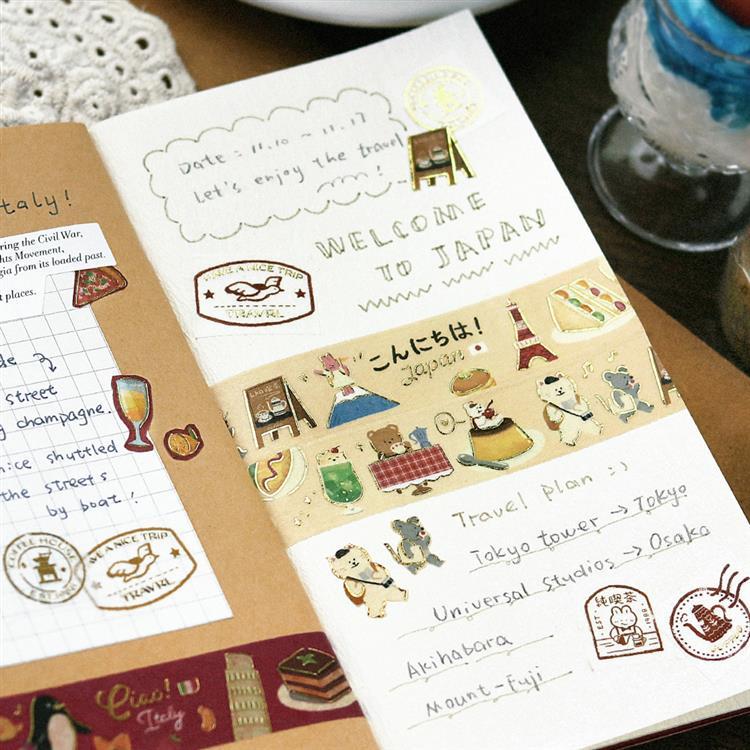 taly!
ring the Civil War,
hts Movement,
gia from its loaded past.
t places.
de
street
g champagne.
nice shuttled
the streets
by boat!
COFFEE HOUSE
HAVE A NICE TRIP
TRAVRL
Ciao!
Italy
Date : 11.10 ~ 11.17
Let's enjoy the travel
!
WELCOME
TO JAPAN
HAVE A NICE TRIP
TRAVRL
こんにちは!
Japan
Travel plan :)
Tokyo tower → Tokyo
Universal Studios → Osaka
Akihabara
Mount-Fuji
純喫茶
EST